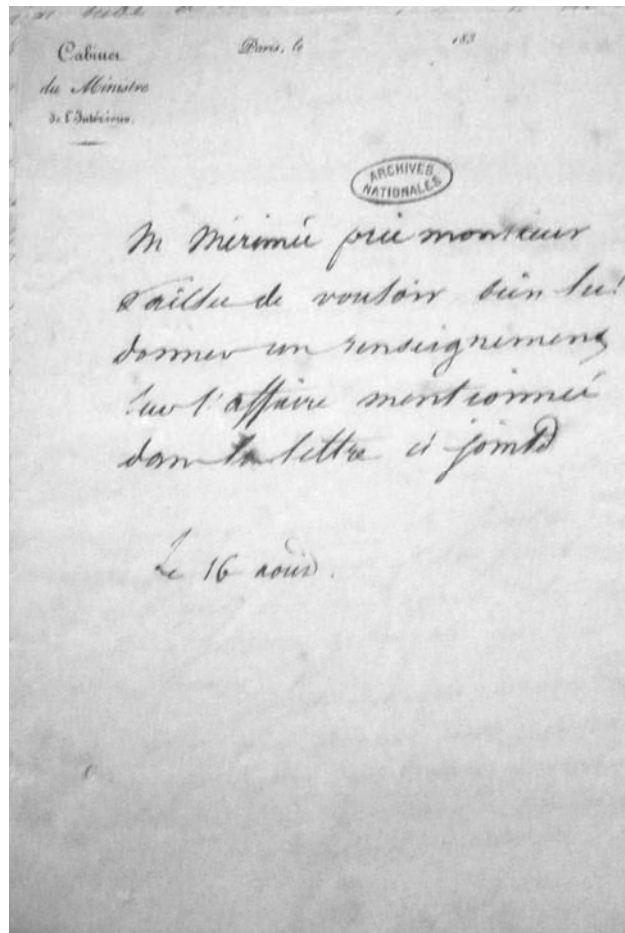 Cabinet
du Ministre
de l'Intérieur.
Paris, le 183
ARCHIVES
NATIONALES
M Mérimée prie monsieur
de vouloir bien lui
donner un renseignement
sur l'affaire mentionnée
dans la lettre ci jointe
Le 16 août.